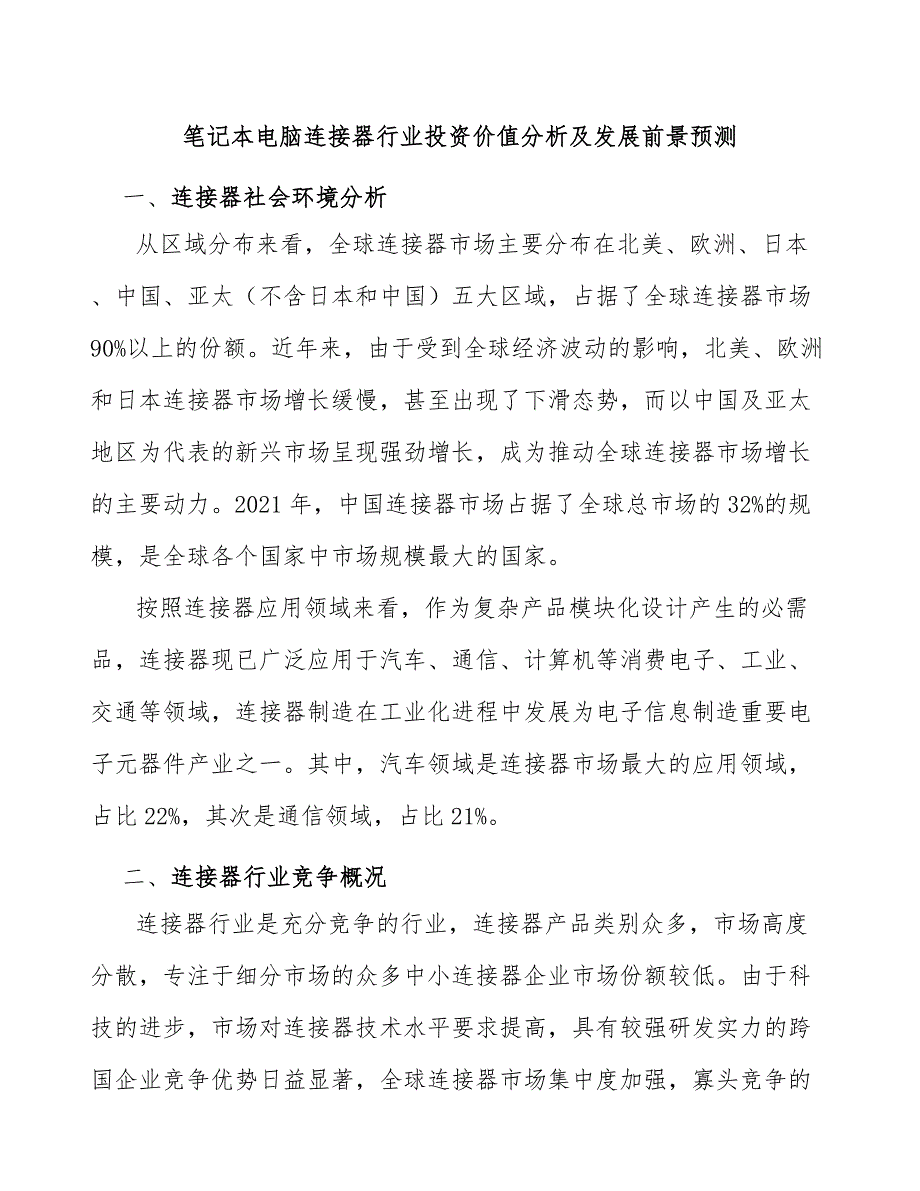 笔记本电脑连接器行业投资价值分析及发展前景预测
一、连接器社会环境分析
从区域分布来看，全球连接器市场主要分布在北美、欧洲、日本
、中国、亚太（不含日本和中国）五大区域，占据了全球连接器市场
90%以上的份额。近年来，由于受到全球经济波动的影响，北美、欧洲
和日本连接器市场增长缓慢，甚至出现了下滑态势，而以中国及亚太
地区为代表的新兴市场呈现强劲增长，成为推动全球连接器市场增长
的主要动力。2021 年，中国连接器市场占据了全球总市场的 32%的规
模，是全球各个国家中市场规模最大的国家。
按照连接器应用领域来看，作为复杂产品模块化设计产生的必需
品，连接器现已广泛应用于汽车、通信、计算机等消费电子、工业、
交通等领域，连接器制造在工业化进程中发展为电子信息制造重要电
子元器件产业之一。其中，汽车领域是连接器市场最大的应用领域，
占比 22%，其次是通信领域，占比 21%。
二、连接器行业竞争概况
连接器行业是充分竞争的行业，连接器产品类别众多，市场高度
分散，专注于细分市场的众多中小连接器企业市场份额较低。由于科
技的进步，市场对连接器技术水平要求提高，具有较强研发实力的跨
国企业竞争优势日益显著，全球连接器市场集中度加强，寡头竞争的